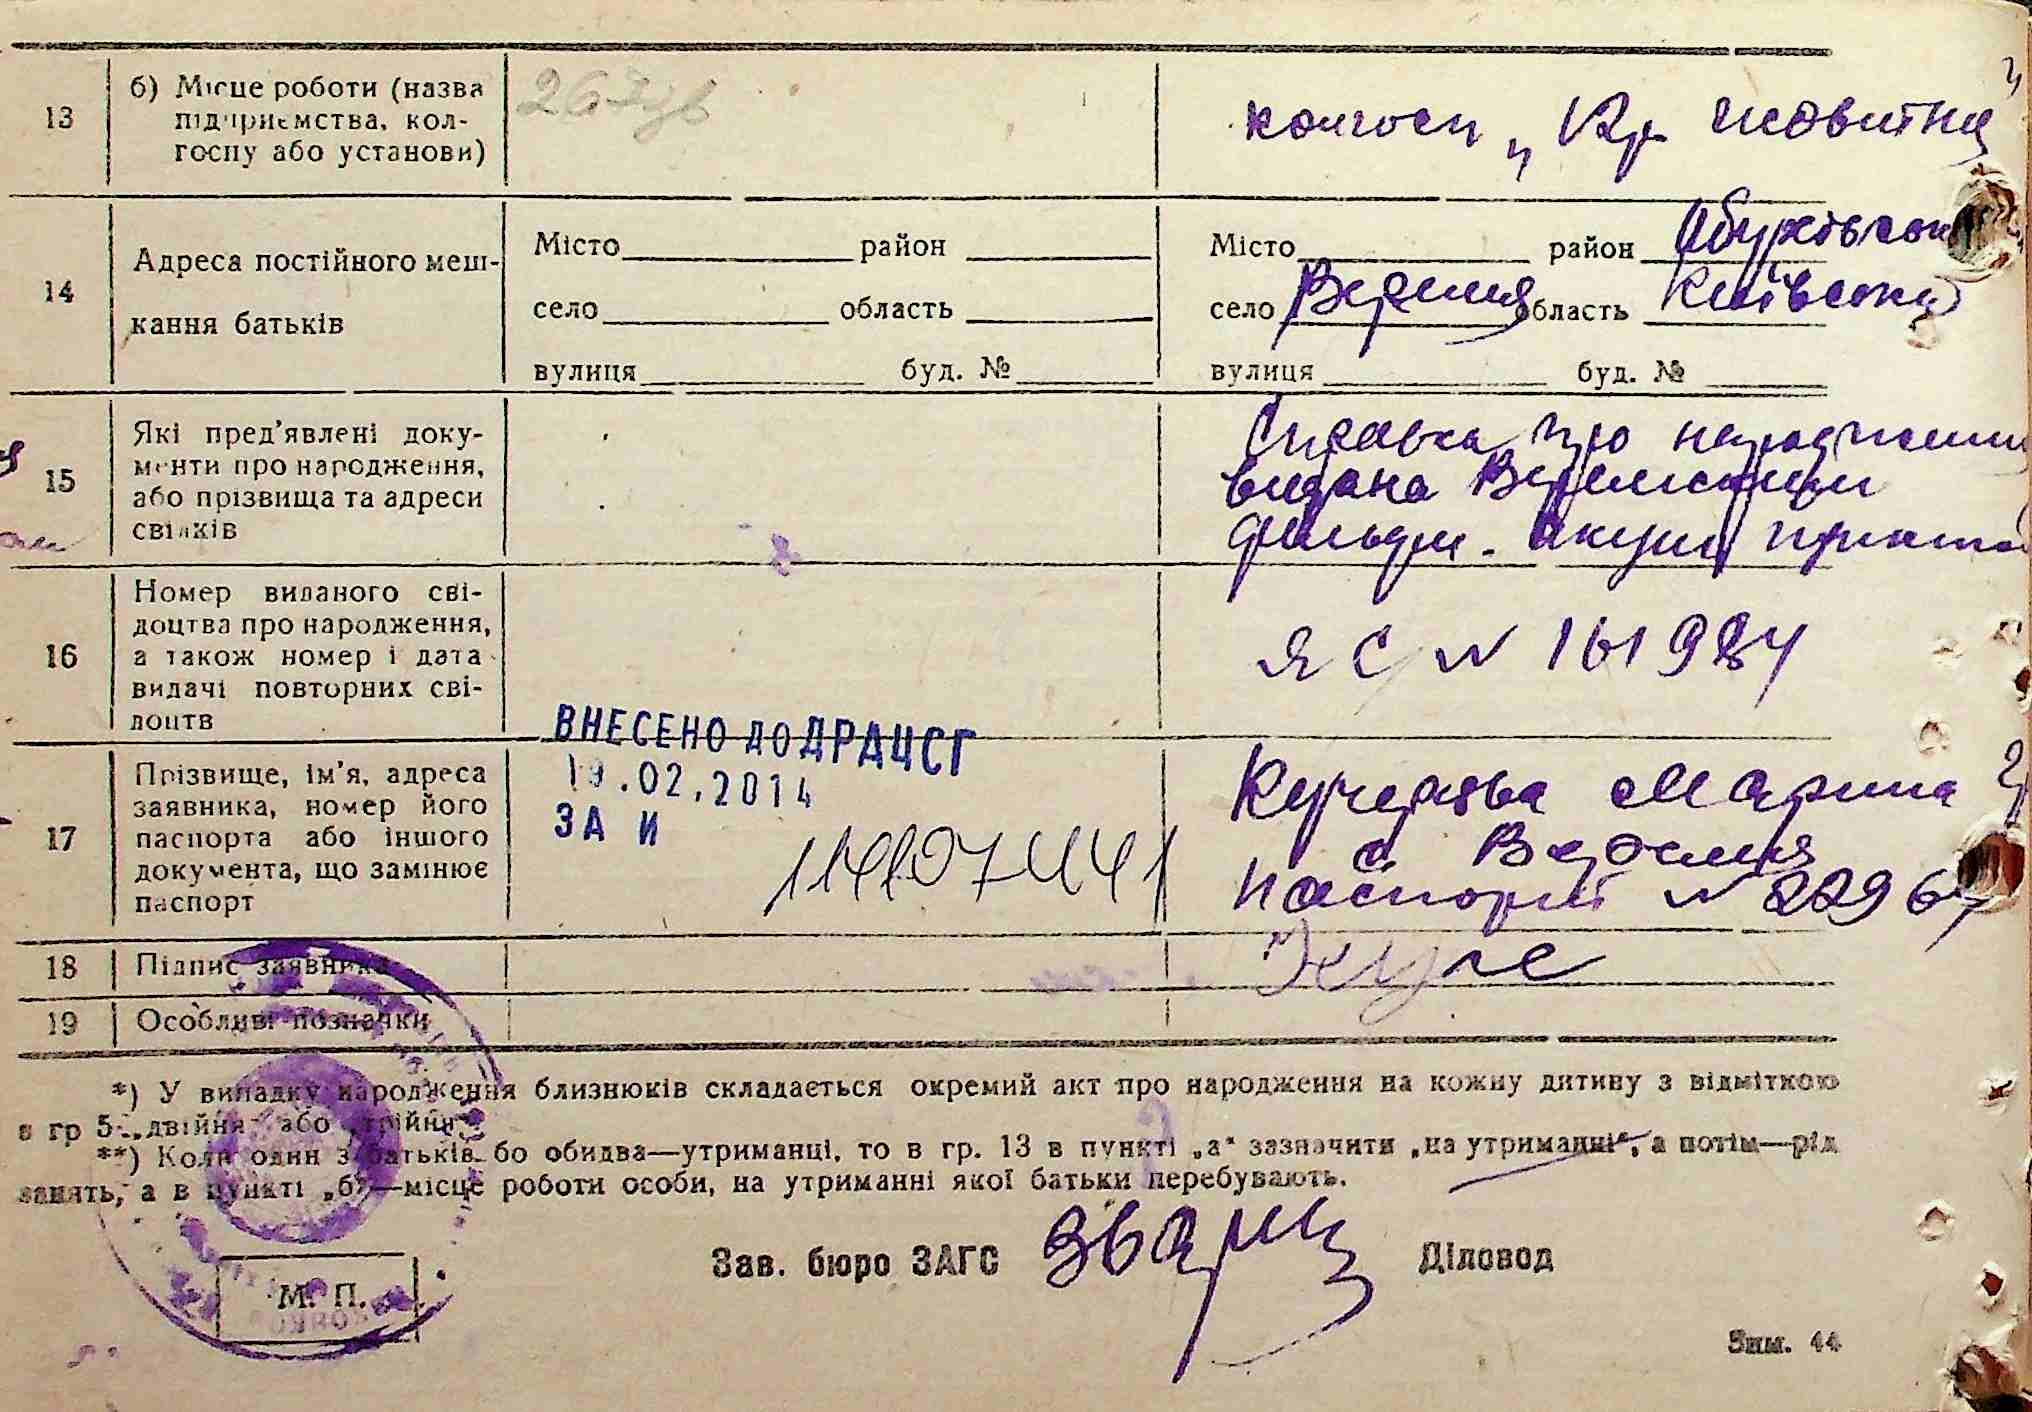 13
б) Місце роботи (назва
підприємства, кол-
госпу або установи)
колгосп „ Кр жовтня
14
Адреса постійного меш-
кання батьків
Місто район
село область
вулиця буд. №
Місто район Обухівськ
село Веремя область Київська
вулиця буд. №
15
Які пред’явлені доку-
менти про народження,
або прізвища та адреси
свідків
Справка про народження
видана Веремським
фельдш. акуш пункто
16
Номер виданого сві-
доцтва про народження,
а також номер і дата
видачі повторних сві-
доцтв
ЯС N 161984
ВНЕСЕНО ДО ДРАЦСГ
19.02.2014
ЗА И
17
Прізвище, ім’я, адреса
заявника, номер його
паспорта або іншого
документа, що замінює
паспорт
Кучерява Марина
с. Веремя
паспорт N 22967
18
Підпис заявника
19
Особливі позначки
*) У випадку народження близнюків складається окремий акт про народження на кожну дитину з відміткою
в гр 5 „двійня“ або „трійня“.
**) Коли один з батьків бо обидва—утриманці, то в гр. 13 в пункті „а“ зазначити „на утриманні“, а потім—рід
занять, а в пункті „б“—місце роботи особи, на утриманні якої батьки перебувають.
Зав. бюро ЗАГС Діловод
М. П.
Зим. 44